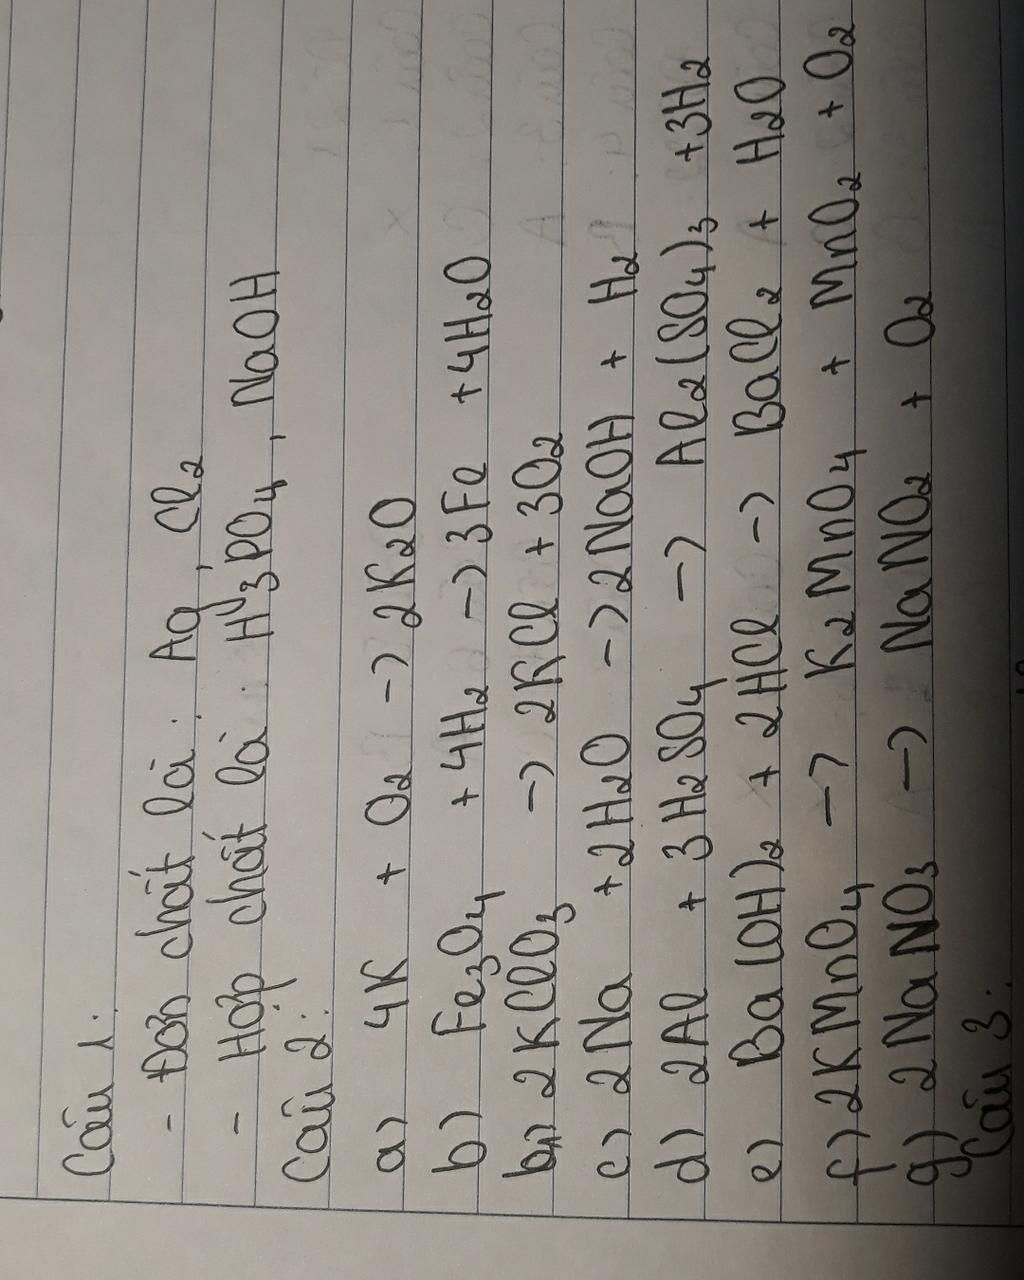 Câu 1:
- Đơn chất là: Ag, Cl2
- Hợp chất là: H3PO4, NaOH
Câu 2:
a) 4K + O2 -> 2K2O
b) Fe3O4 + 4H2 -> 3Fe + 4H2O
b1) 2KClO3 -> 2KCl + 3O2
c) 2Na + 2H2O -> 2NaOH + H2
d) 2Al + 3H2SO4 -> Al2(SO4)3 + 3H2
e) Ba(OH)2 + 2HCl -> BaCl2 + H2O
f) 2KMnO4 -> K2MnO4 + MnO2 + O2
g) 2NaNO3 -> NaNO2 + O2
Câu 3: